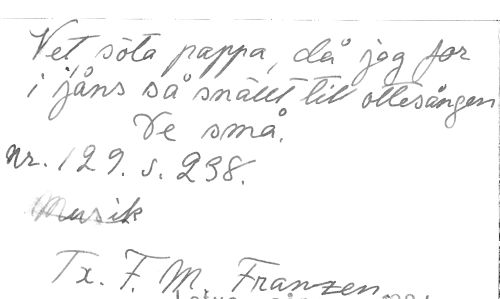 Vet, söta pappa, då jag for
i jåns så snällt till ottesången
De små.
nr. 129. s. 238.
Musik
Tx. F. M. Franzen